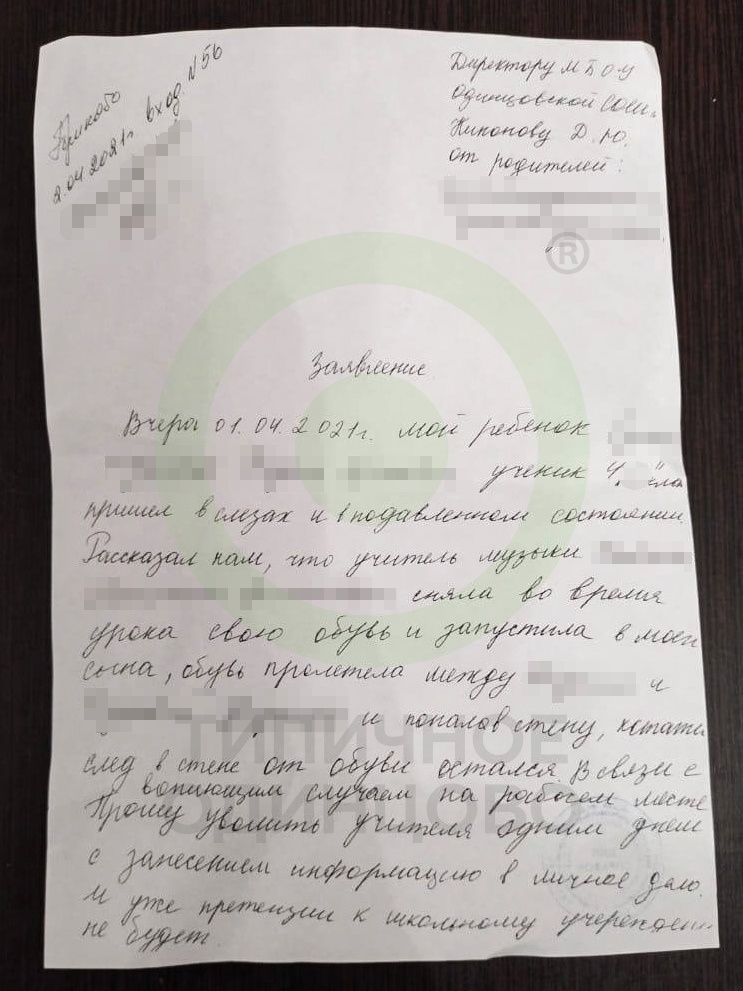 Принято
2.04.2021г. вход. N 56
Директору МБОУ
Одинцовской СОШ
Никонову Д. Ю.
от родителей:
®
Заявление
Вчера 01.04.2021г. мой ребенок
ученик 4
пришел в слезах и в подавленном состоянии.
Рассказал нам, что учитель музыки
сняла во время
урока свою обувь и запустила в моег
сына, обувь пролетела между
и
и попала в стену, кстати
ТИПИЧНОЕ
след в стене от обуви остался. В связи с
вопиющим случаем на рабочем месте
ОДИНЦОВО
Прошу уволить учителя одним днем
с занесением информацию в личное дело.
и уже претензии к школьному учережден
не будет.